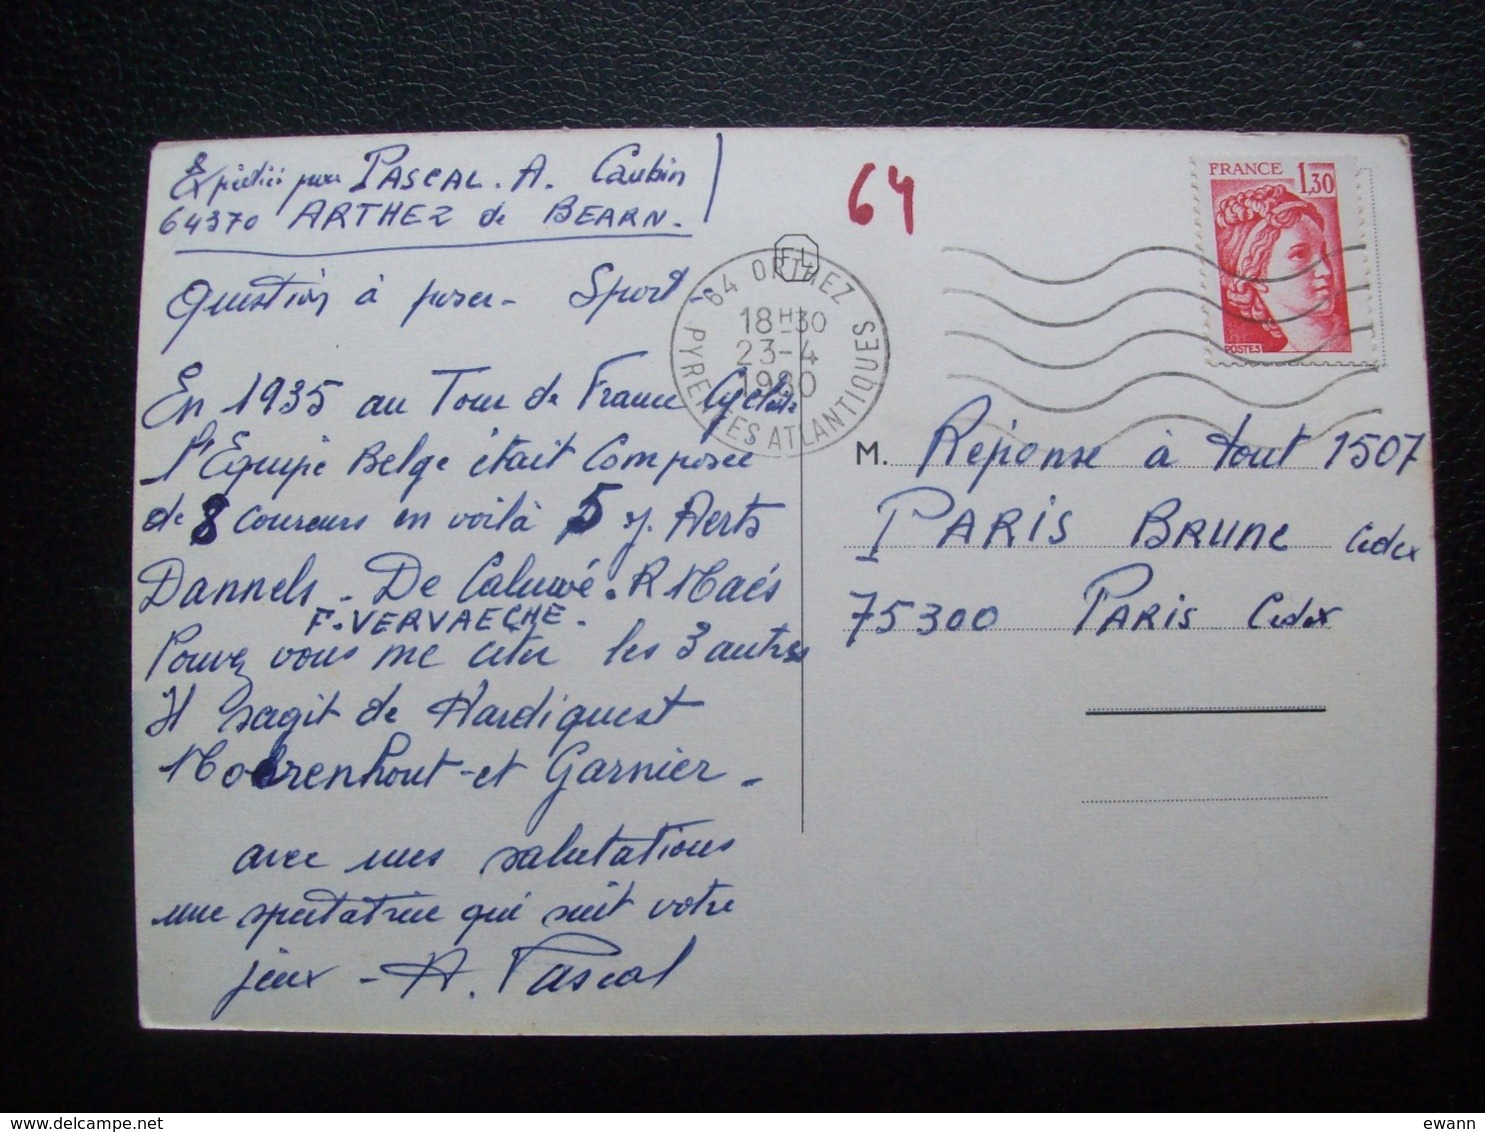 Expédié par PASCAL. A. Caubin
64370 ARTHEZ de BEARN.
Question à poser - Sport -
En 1935 au Tour de France Cycliste
l'Equipe Belge était Composée
de 8 coureurs en voilà 5 J. Aerts
Dannels - De Caluwé. R Maës
F. VERVAECHE.
Pouvez vous me citer les 3 autres
Il sagit de Hardiquest
Moerenhout - et Garnier -
avec mes salutations
une spectatrice qui suit votre
jeux - A. Pascal
64
FRANCE 1,30
POSTES
64 ORTHEZ
18H30
23-4
1980
PYRENEES ATLANTIQUES
M. Réponse à tout 1507
PARIS BRUNE Cedex
75300 PARIS Cedex
ewann delcampe.net